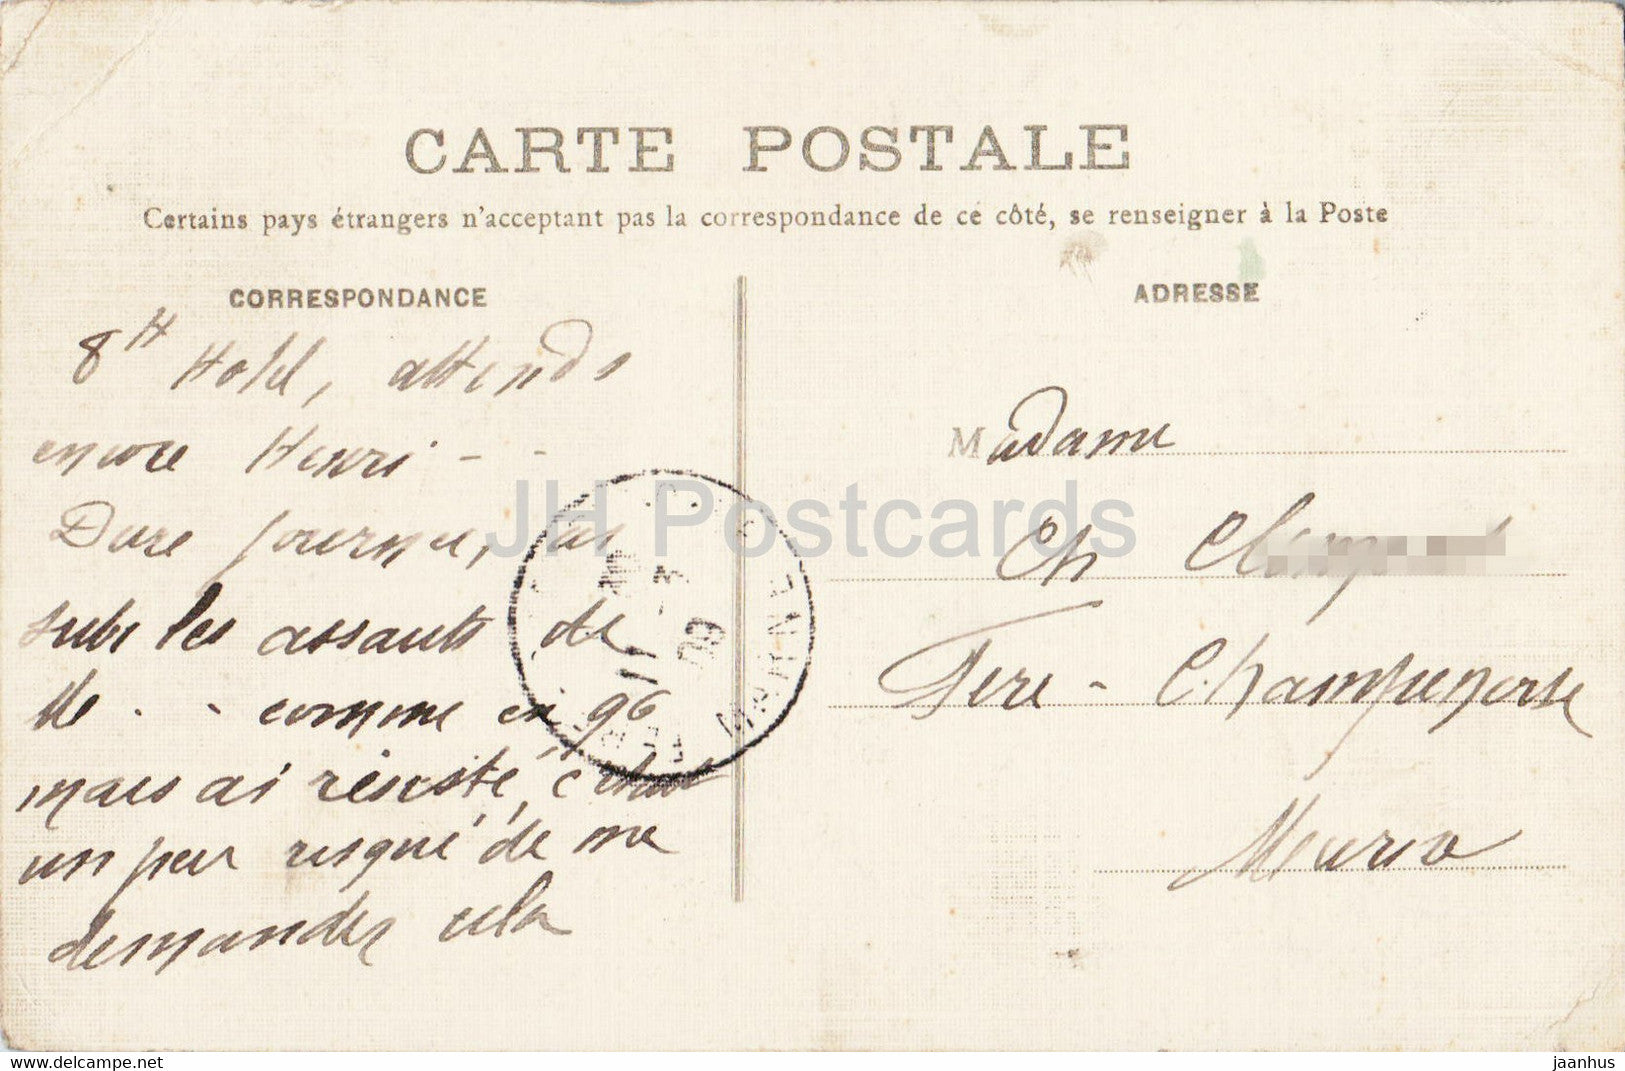 CARTE POSTALE
Certains pays étrangers n'acceptant pas la correspondance de ce côté, se renseigner à la Poste
CORRESPONDANCE
8H Hotel, attends
encore Henri - -
Dure journée, ai
subi les assauts de
Me . - comme en 96
mais ai résisté, c'était
un peu risqué de me
demander cela
ADRESSE
Madame
Ch
Fère-Champenoise
Marne
MARNE
11 -3
09
JH Postcards
www.delcampe.net
jaanhus